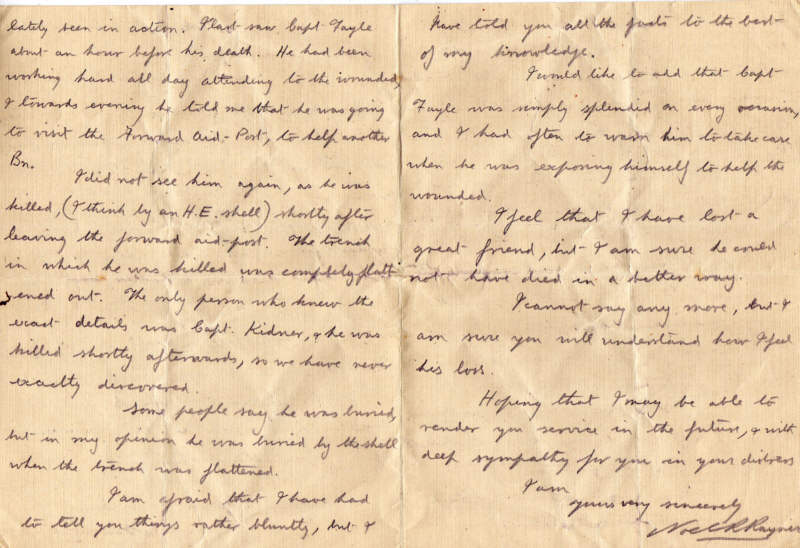 lately been in action. I last saw Capt Fayle
about an hour before his death. He had been
working hard all day attending to the wounded,
& towards evening he told me that he was going
to visit the Forward Aid-Post, to help another
Bn.
I did not see him again, as he was
killed, (I think by an H.E. shell) shortly after
leaving the forward aid-post. The trench
in which he was killed was completely flatt
ened out. The only person who knew the
exact details was Capt. Kidner, & he was
killed shortly afterwards, so we have never
exactly discovered.
Some people say he was buried,
but in my opinion he was buried by the shell
when the trench was flattened.
I am afraid that I have had
to tell you things rather bluntly, but I
have told you all the facts to the best
of my knowledge.
I would like to add that Capt
Fayle was simply splendid on every occasion,
and I had often to warn him to take care
when he was exposing himself to help the
wounded.
I feel that I have lost a
great friend, but I am sure he could
not have died in a better way.
I cannot say any more, but I
am sure you will understand how I feel
his loss.
Hoping that I may be able to
render you service in the future, & with
deep sympathy for you in your distress
I am
yours very sincerely
Noel R Rayner